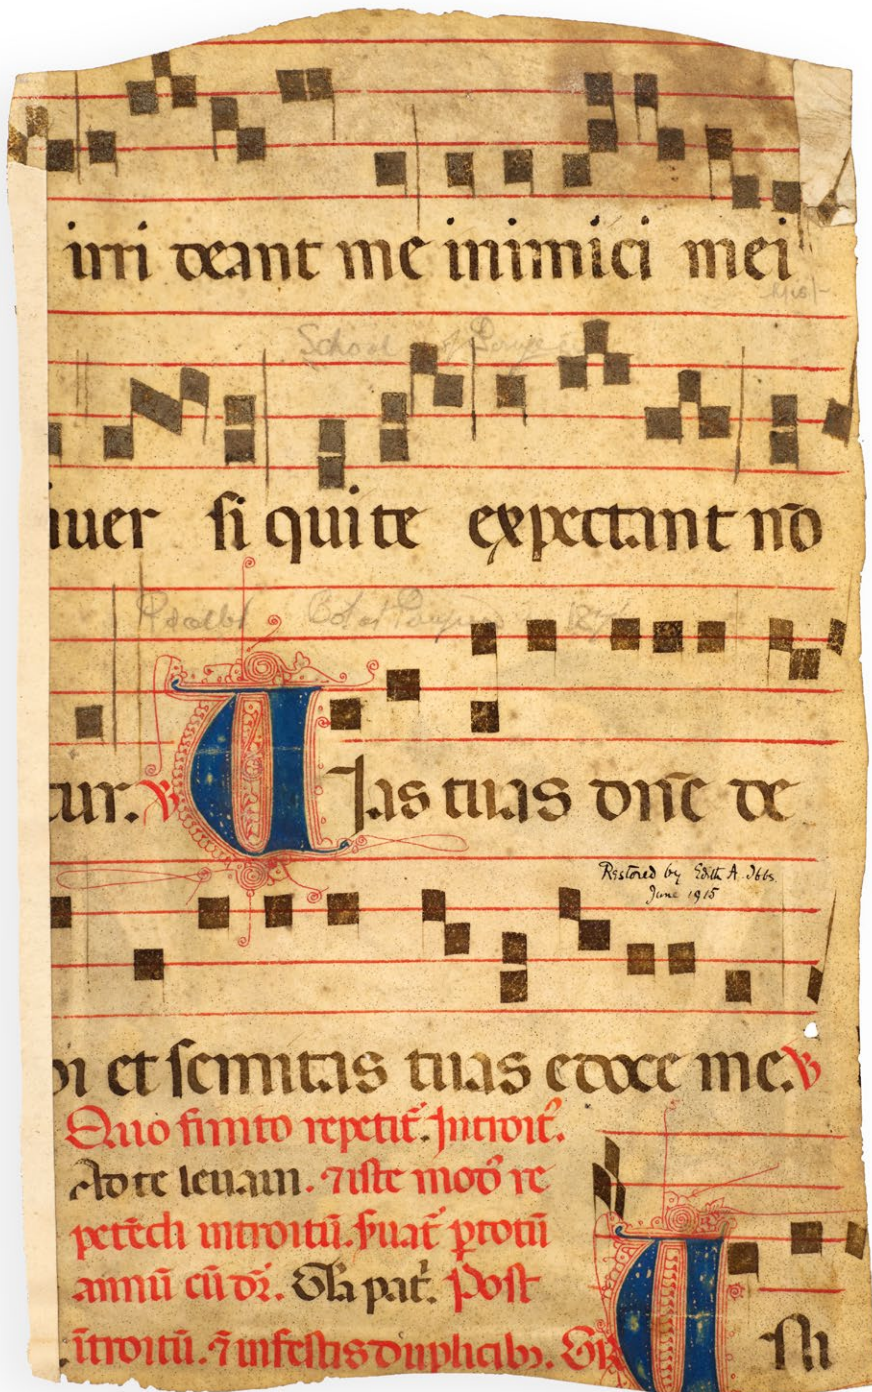 irri deant me inimici mei
School of
iuer si qui te expectant nō
tur. ℣ Vias tuas dn̄e de
Restored by Edith A. Ibbs
June 1915
bi et semitas tuas edoce me. ℣
Quo finito repetit̄. Introit̄.
Ad te leuaui. ⁊ iste modꝰ re
petēdi introitū. ẜuat̄ ꝑ totū
annū cū dr̄. Gl̄a pat̄. Post
ītroitū. ⁊ in festis duplicibꝫ.
V ni